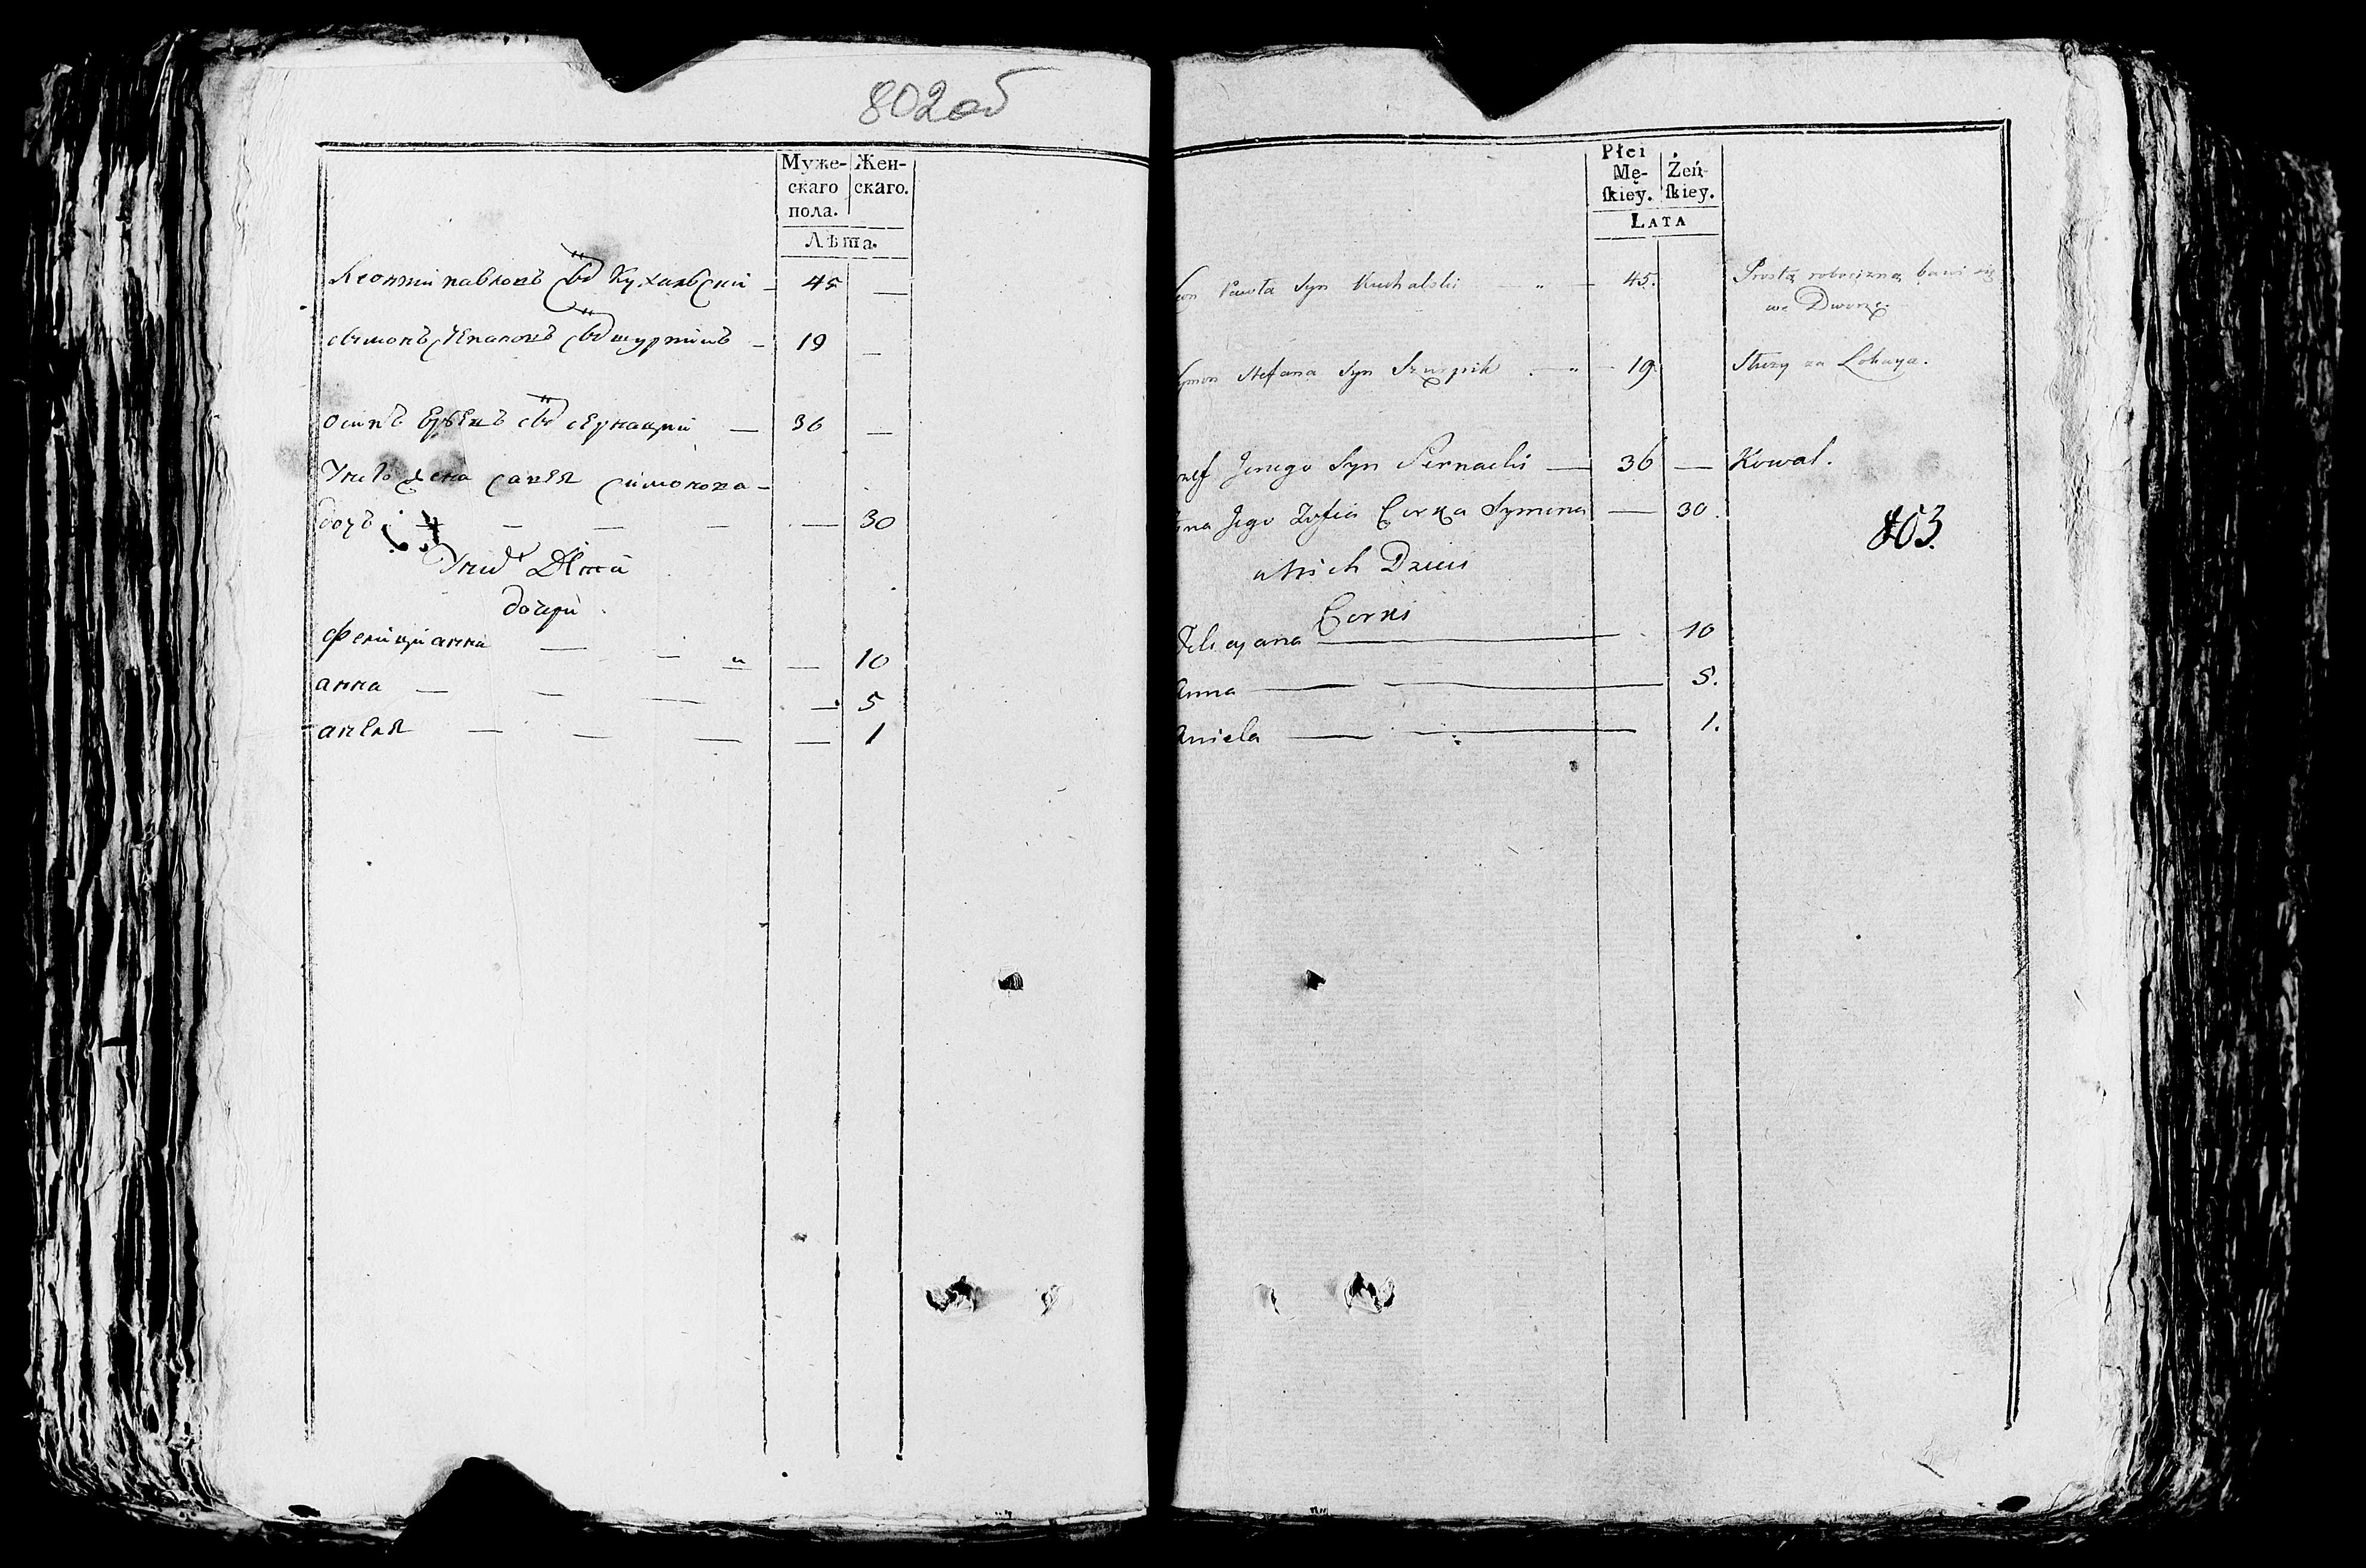 802 об
Муже-
скаго
пола.
Жен-
скаго.
Лѣта.
Леонтий павловъ сынъ Кухальский - 45 —
сымонъ степановъ сынъ шурпикъ - 19 —
осипъ сынъ сернацкий — 36 —
Унего жена симонова -
дочъ — — — — 30
Унихъ Дети
дочери
фелициянна — — — 10
анна — — — — 5
анеля — — — — 1
Płci
Mę-
ſkiey.
Żeń-
ſkiey.
LATA
Pawła Syn Kuchalski — 45.
Prostą robocizną bawi się
we Dworze.
Stefana Syn Szurpik — 19
Służy za Lokaya.
Jerzego Syn Sernacki — 36 — Kowal.
Jego Zofia Corka Symona — 30.
803.
u Nich Dzieci
Corki
Felicyana — 10
Anna — 5.
Aniela — 1.